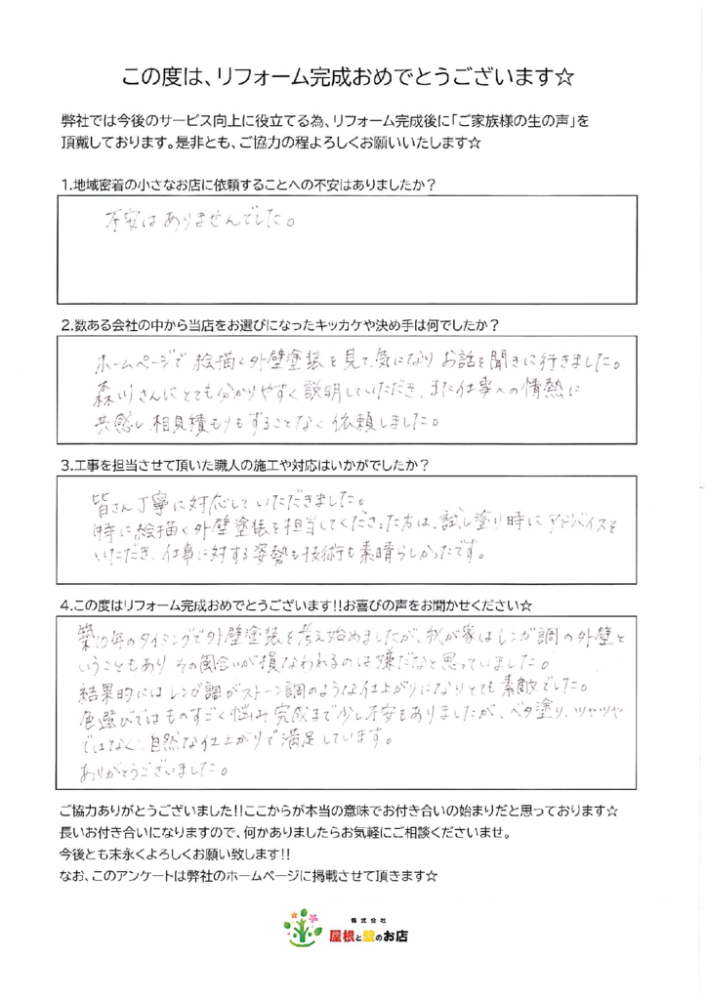 この度は、リフォーム完成おめでとうございます☆
弊社では今後のサービス向上に役立てる為、リフォーム完成後に「ご家族様の生の声」を
頂戴しております。是非とも、ご協力の程よろしくお願いいたします☆
1.地域密着の小さなお店に依頼することへの不安はありましたか？
不安はありませんでした。
2.数ある会社の中から当店をお選びになったキッカケや決め手は何でしたか？
ホームページで絵描く外壁塗装を見て、気になりお話を聞きに行きました。
森川さんにとても分かりやすく説明していただき、また仕事への情熱に
共感し、相見積もりもすることなく依頼しました。
3.工事を担当させて頂いた職人の施工や対応はいかがでしたか？
皆さん丁寧に対応していただきました。
特に絵描く外壁塗装を担当してくださった方は、試し塗り時にアドバイスを
いただき、仕事に対する姿勢も技術も素晴らしかったです。
4.この度はリフォーム完成おめでとうございます!!お喜びの声をお聞かせください☆
築10年のタイミングで外壁塗装を考え始めましたが、我が家はレンガ調の外壁と
いうこともあり その風合いが損なわれるのは嫌だなと思っていました。
結果的にはレンガ調がストーン調のような仕上がりになりとても素敵でした。
色選びではものすごく悩み 完成まで少し不安もありましたが、ベタ塗り、ツヤツヤ
ではなく、自然な仕上がりで満足しています。
ありがとうございました。
ご協力ありがとうございました!!ここからが本当の意味でお付き合いの始まりだと思っております☆
長いお付き合いになりますので、何かありましたらお気軽にご相談くださいませ。
今後とも末永くよろしくお願い致します!!
なお、このアンケートは弊社のホームページに掲載させて頂きます☆
株式会社
屋根と壁のお店